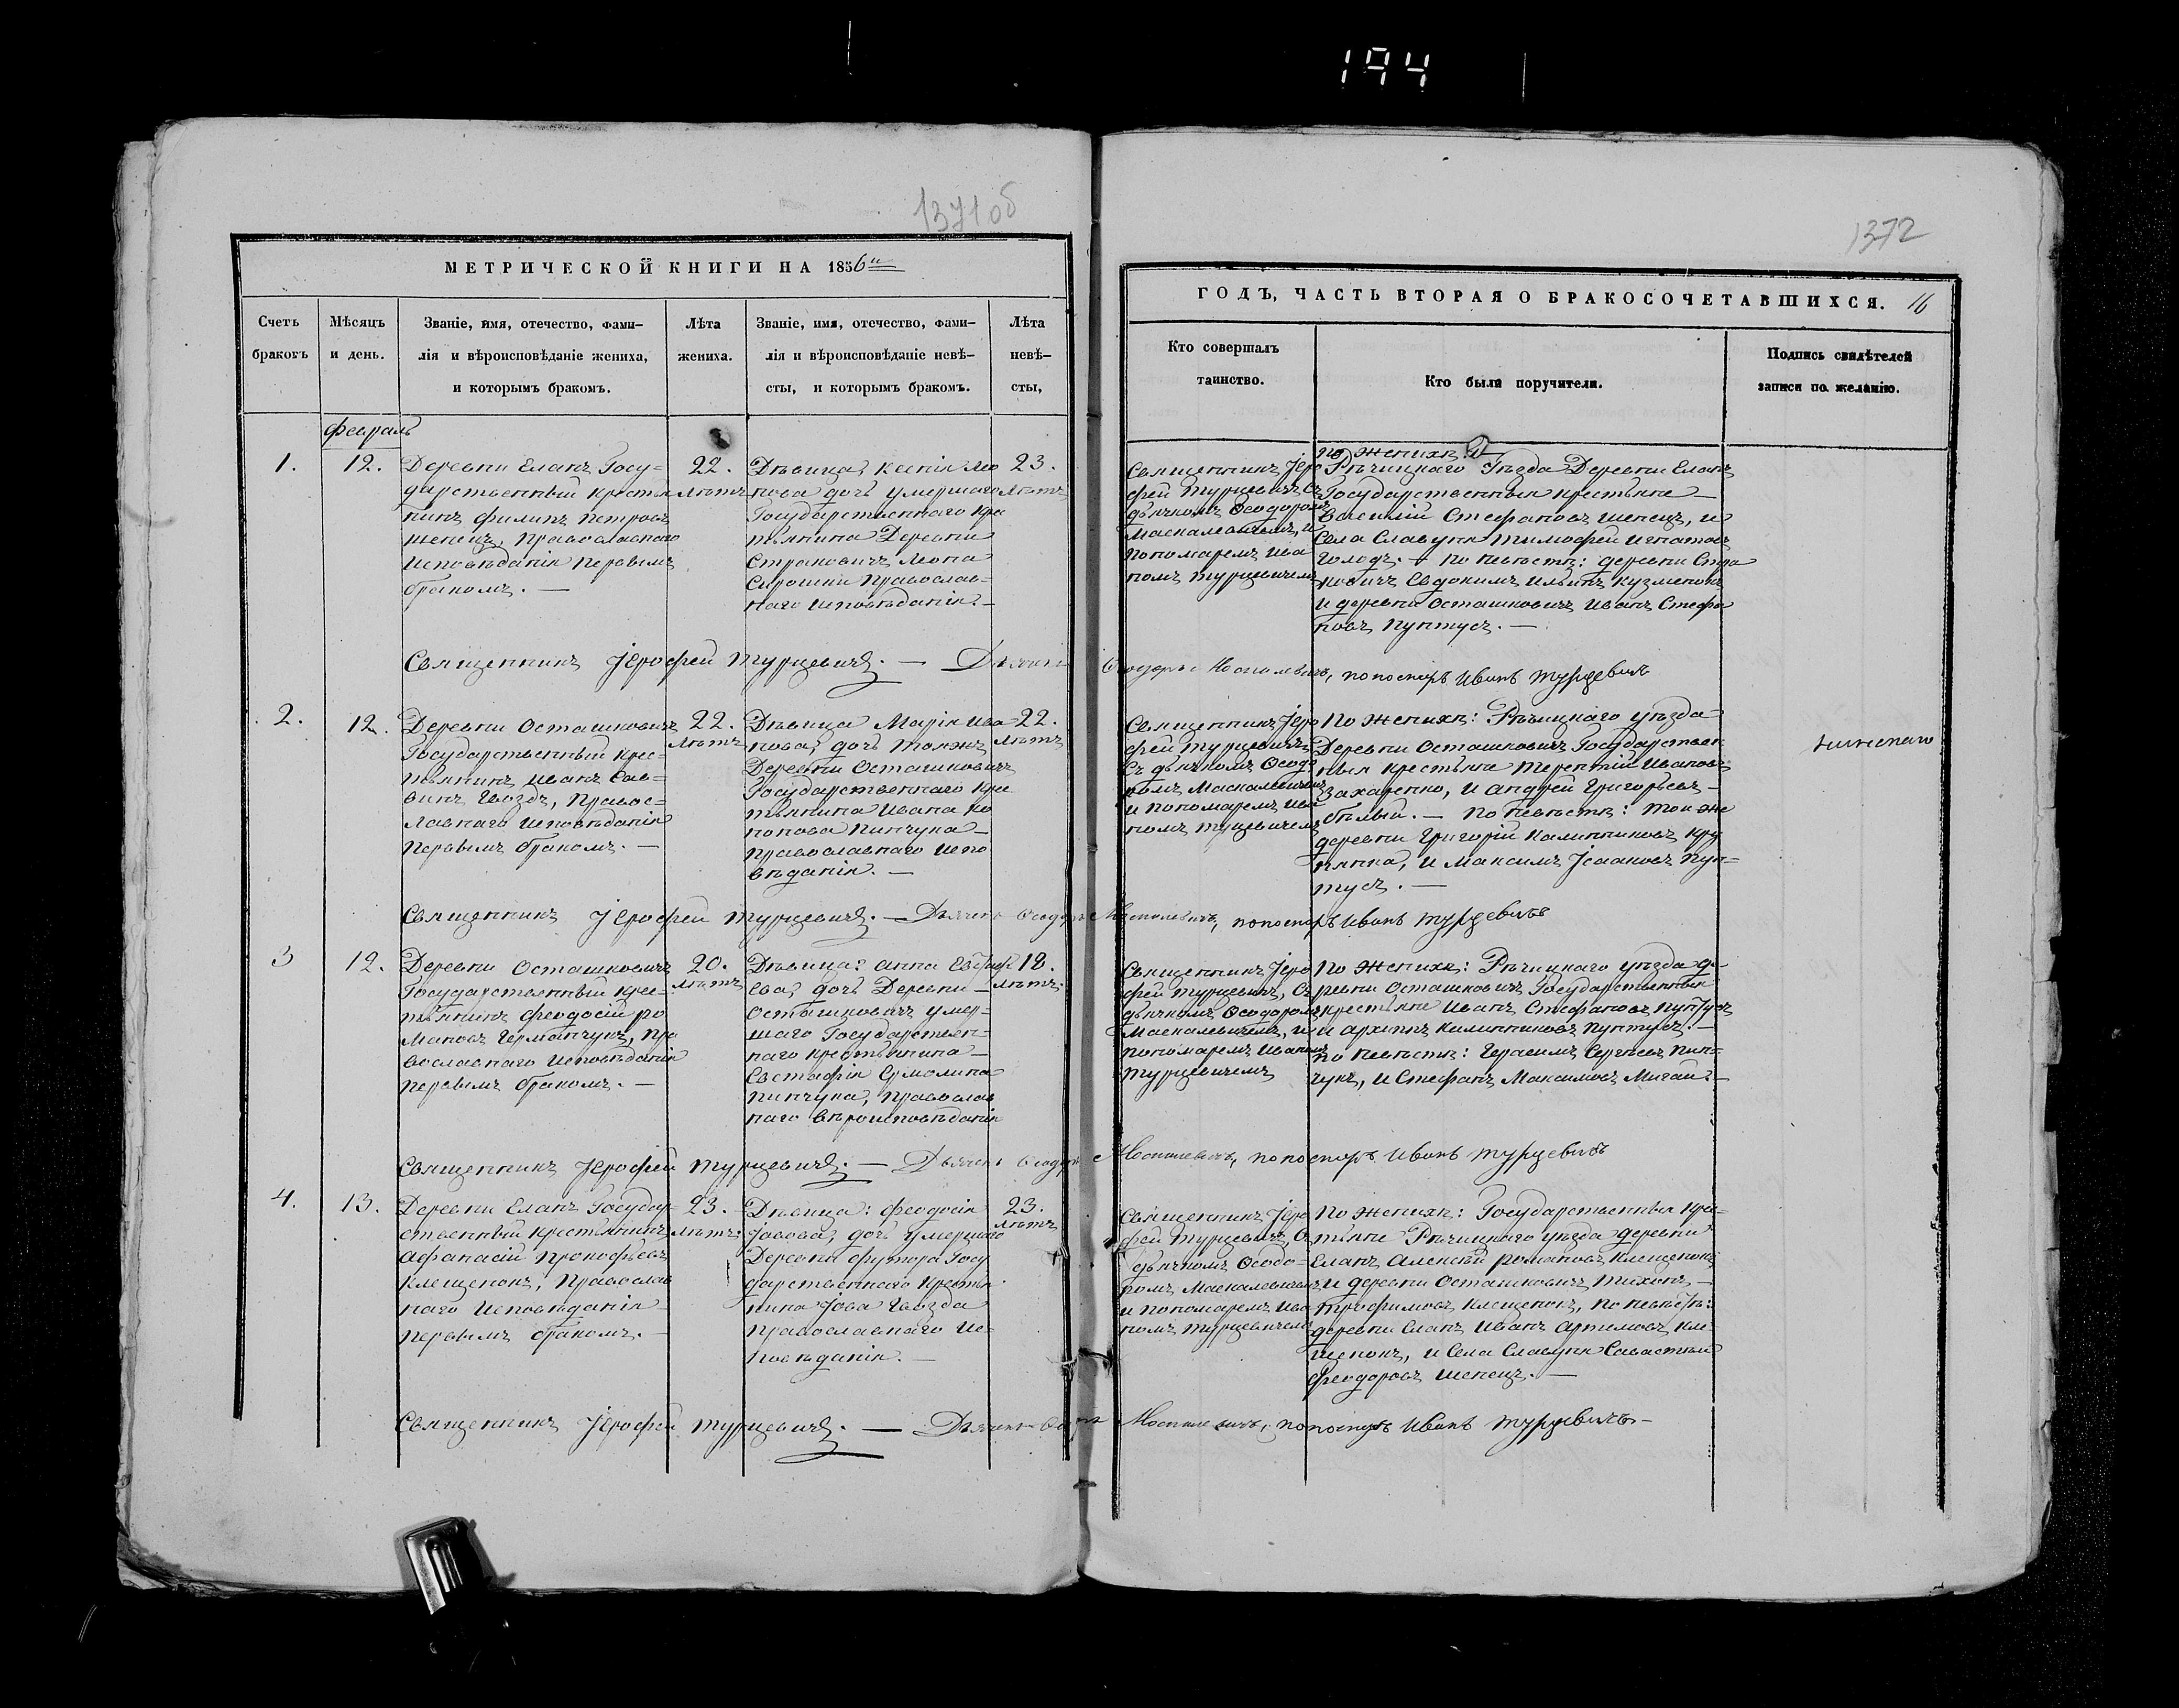 194
1371 об
1372
МЕТРИЧЕСКОЙ КНИГИ НА 1856й
Счетъ
браковъ
Мѣсяцъ
и день.
Званіе, имя, отечество, фами-
лія и вѣроисповѣданіе жениха,
и которымъ бракомъ.
Лѣта
жениха.
Званіе, имя, отечество, фами-
лія и вѣроисповѣданіе невѣ-
сты, и которымъ бракомъ.
Лѣта
невѣ-
сты,
ГОДЪ, ЧАСТЬ ВТОРАЯ О БРАКОСОЧЕТАВШИХСЯ. 16
Кто совершалъ
таинство.
Кто были поручители.
Подпись свидѣтелей
записи по желанію.
Февраль
1.
12.
Деревни Еланъ Госу-
дарственный крестья
нинъ Филипъ Петровъ
Шепецъ, Православнаго
Исповѣданія Первымъ
бракомъ. —
22.
Лѣтъ
Дѣвица, Ксенія Мо
нова дочь умершаго
Государственнаго Кре
тьянина Деревни
Страковичъ Мона
Сирошки Православ-
наго Исповѣданія. —
23.
Лѣтъ
Священникъ Іеро
фей Турцевичъ Съ
дьячкомъ Ѳеодоромъ
Маскалевичемъ, и
Пономаремъ Ива
номъ Турцевичемъ
По Женихѣ:
Рѣчицкаго Уѣзда Деревни Еланъ
Государственныя крестьяне —
Василій Стефановъ Шепецъ, и
Села Славуня Тимофей Игнатовъ
Голодъ. — По Невѣстѣ: деревни Стра
ковичъ Евдокимъ Ильинъ Кузменокъ
и деревни Осташковичъ Иванъ Стефа
новъ Пунтусъ. —
Священникъ Іерофей Турцевичъ. — Дьячекъ Ѳеодоръ Москалевичъ, пономаръ Иванъ Турцевичъ
2.
12.
Деревни Осташковичъ
Государственный Крес-
тьянинъ Иванъ Сав-
винъ Гвоздъ, Правос-
лавнаго Исповѣданія
Первымъ бракомъ. —
22.
Лѣтъ
Дѣвица Марія Ива
нова, дочь тояжъ
Деревни Осташковичъ
Государственнаго Кре
тьянина Ивана Ко
нонова Пинчука —
Православнаго Испо
вѣданія. —
22.
Лѣтъ
Священникъ Іеро
фей Турцевичъ
Съ дьячкомъ Ѳеодо
ромъ Маскалевичемъ
и Пономаремъ Ива
номъ Турцевичемъ
По Женихѣ: Рѣчицкаго уѣзда
Деревни Осташковичъ Государствен
ныя крестьяне Терентій Ивановъ
Захаренко, и Андрей Григорьевъ —
Бѣлый. — По Невѣстѣ: Той же
деревни Григорій Калинниковъ Кру
пянка, и Максимъ Ісааковъ Пун-
тусъ. —
Священникъ Іерофей Турцевичъ. — Дьячекъ Ѳеодоръ Москалевичъ, пономаръ Иванъ Турцевичъ
3
12.
Деревни Осташковичъ
Государственный Крес-
тьянинъ Феодосій Ро
мановъ Германчукъ, Пра
вославнаго Исповѣданія
Первымъ бракомъ. —
20.
Лѣтъ
Дѣвица: Анна Евстафі
ева, дочь Деревни —
Осташковичъ умер-
шаго Государствен-
наго крестьянина —
Евстафія Ермолина
Пинчука, Православ
наго Вѣроисповѣданія
18.
Лѣтъ.
Священникъ Іеро
фей Турцевичъ, Съ
дьячкомъ Ѳеодоромъ
Маскалевичемъ, и
пономаремъ Иваномъ
Турцевичемъ
По Женихѣ: Рѣчицкаго уѣзда де-
ревни Осташковичъ Государственныя
крестьяне Иванъ Стефановъ Пунтусъ
и Архипъ Калинниковъ Пунтусъ. —
По Невѣстѣ: Герасимъ Сергѣевъ Пин-
чукъ, и Стефанъ Максимовъ Мигай. —
Священникъ Іерофей Турцевичъ. — Дьячекъ Ѳеодоръ Москалевичъ, пономаръ Иванъ Турцевичъ
4.
13.
Деревни Еланъ Государ-
ственный крестьянинъ
Афанасій Прокофьевъ
Клещенокъ, Православ
наго Исповѣданія
Первымъ бракомъ. —
23.
Лѣтъ.
Дѣвица: Феодосія
Іовова, дочь умершаго
Деревни Футора Госу
дарственнаго Крестья
нина Іова Гвозда
Православнаго Ис-
повѣданія. —
23.
Лѣтъ
Священникъ Іеро
фей Турцевичъ, Съ
дьячкомъ Ѳеодо-
ромъ Маскалевичемъ
и Пономаремъ Ива
номъ Турцевичемъ
По Женихѣ: Государственныя Крес-
тьяне Рѣчицкаго уѣзда деревни
Еланъ Алексѣй Романовъ Клещенокъ
и деревни Осташковичъ Тихонъ —
Трофимовъ Клещенокъ, По Невѣстѣ:
деревни Еланъ Иванъ Артимовъ Кле
щенокъ, и Села Славуня Савастьянъ
Феодоровъ Шепецъ. —
Священникъ Іерофей Турцевичъ. — Дьячекъ Ѳеодоръ Москалевичъ, пономаръ Иванъ Турцевичъ —